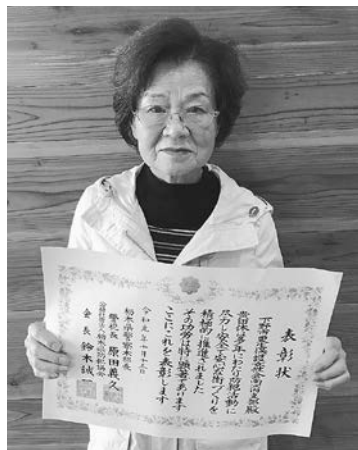 表彰状
貴団体は多年にわたり防犯活動に
尽力し安全で安心な街づくりを
積極的に推進されました
その功労は特に顕著であります
ここにこれを表彰します
令和元年十月十五日
栃木県警察本部長
警視長 原田義久
公益社団法人栃木県防犯協会
会長 鈴木誠一